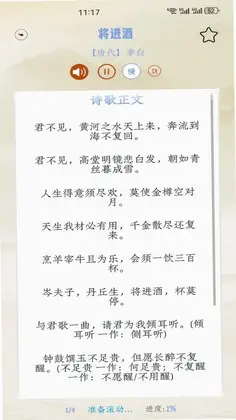 11:17
将进酒
【唐代】李白
慢
诗歌正文
君不见，黄河之水天上来，奔流到
海不复回。
君不见，高堂明镜悲白发，朝如青
丝暮成雪。
人生得意须尽欢，莫使金樽空对
月。
天生我材必有用，千金散尽还复
来。
烹羊宰牛且为乐，会须一饮三百
杯。
岑夫子，丹丘生，将进酒，杯莫
停。
与君歌一曲，请君为我倾耳听。(倾
耳听 一作：侧耳听)
钟鼓馔玉不足贵，但愿长醉不复
醒。(不足贵 一作：何足贵；不复
醒 一作：不愿醒/不用醒)
1/4 准备滚动... 进度：1%